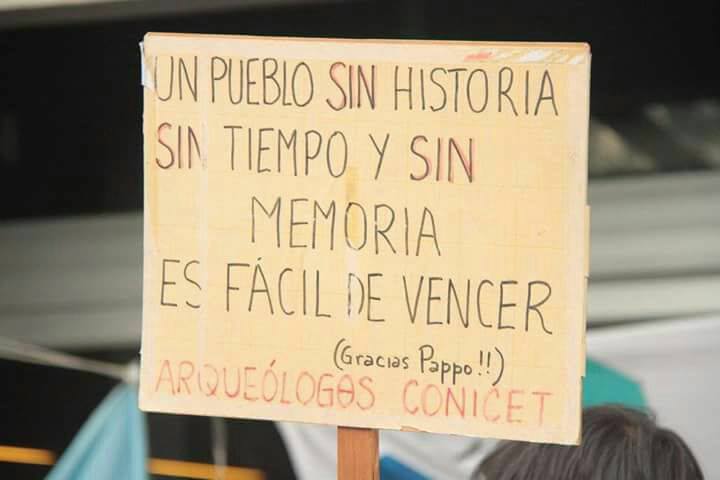 UN PUEBLO SIN HISTORIA
SIN TIEMPO Y SIN
MEMORIA
ES FÁCIL DE VENCER
(Gracias Pappo!!)
ARQUEÓLOGOS CONICET